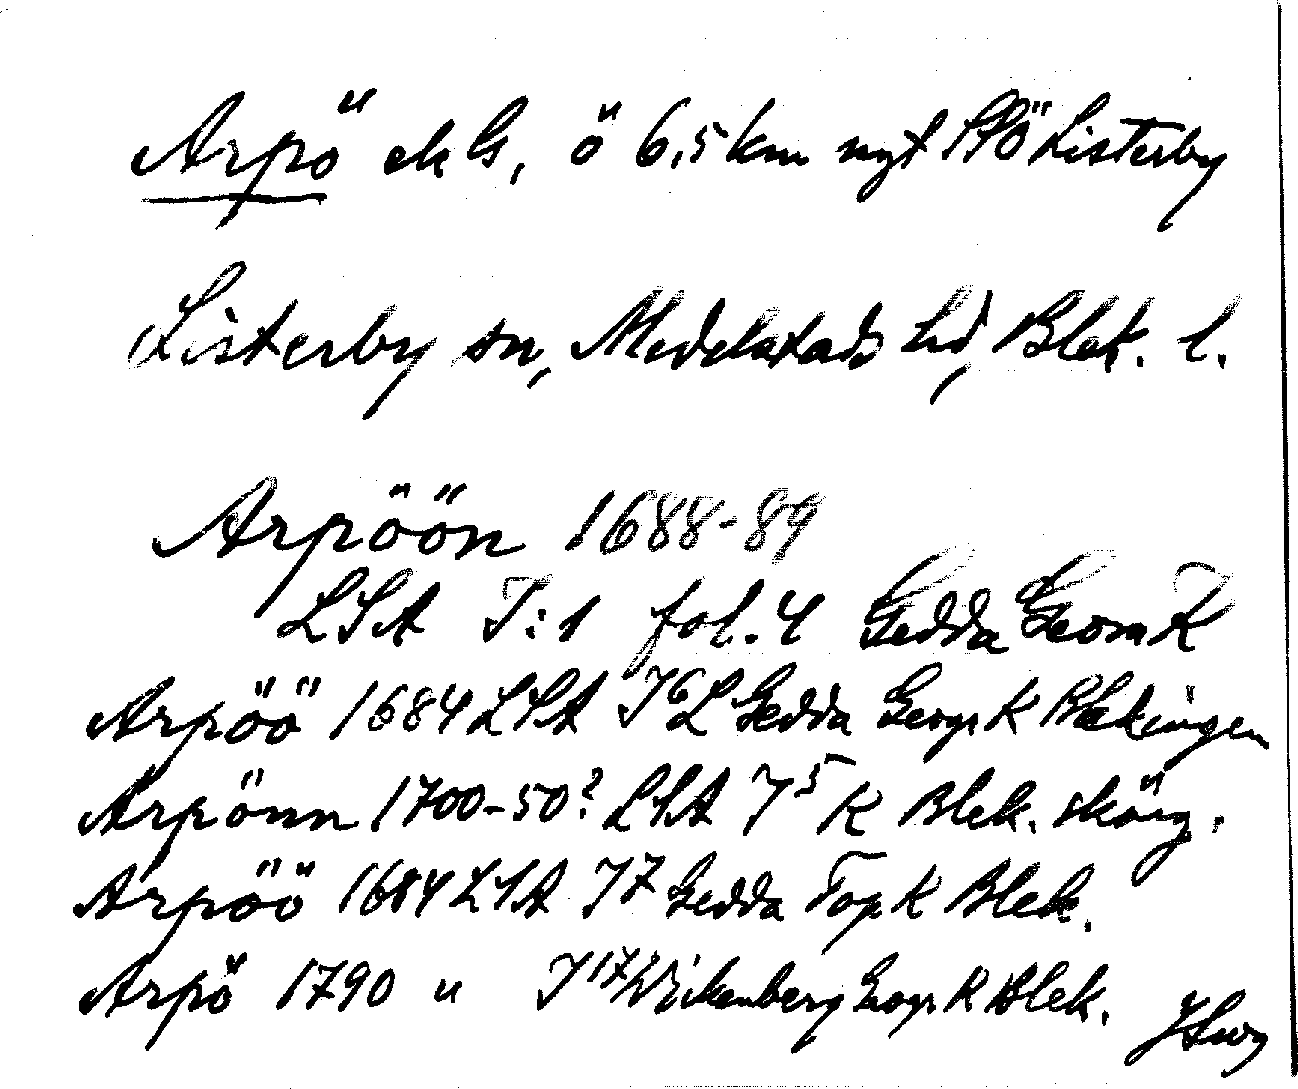 Arpö ek G, ö 6,5 km nyt SSÖ Listerby
Listerby sn, Medelstads hd, Blek. l.
Arpöön 1688-89
LSA I:1 fol. 4 Gedda Geom K
Arpöö 1684 LSA I 6 L Gedda Geogr K Blekingen
Arpönn 1700-50? LSA I 5 K Blek. skärg.
Arpöö 1684 LSA I 7 Gedda Top K Blek.
Arpö 1790 " I 17 Wickenberg Geogr K Blek.